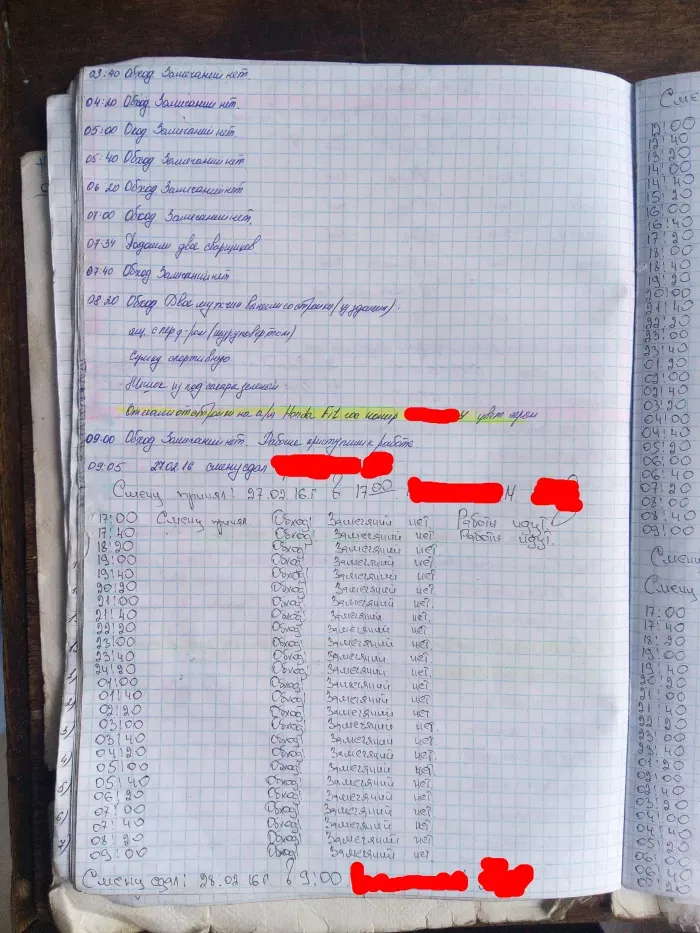 03:40 Обход Замечаний нет.
04:20 Обход Замечаний нет.
05:00 Оход Замечаний нет.
05:40 Обход Замечаний нет
06 20 Обход Замечаний нет
07:00 Обход Замечаний нет.
07:34 Подошли двое сварщиков
07:40 Обход Замечаний нет
08:20 Обход Двое мужчин вынесли со стройки (у здания):
ящ. с перф-ром (шуруповертом)
Сумку спортивную
Мешок из под сахара зеленый
Отъехали от стройки на а/м Honda Fit гос номер У цвет серый
09:00 Обход Замечаний нет. Рабочие приступили к работе
09:05 27.02.16 смену сдал
Смену принял: 27.02.16.г в 17:00.
17:00 Смену принял Обход! Замечяний нет. Работы идут.
17:40 Обход! Замечяний нет. Работы идут.
18:20 Обход! Замечяний нет
19:00 Обход! Замечяний нет
19:40 Обход! Замечяний нет
20:20 Обход! Замечяний нет.
21:00 Обход! Замечяний нет.
21:40 Обход! Замечяний нет.
22:20 Обход! Замечяний нет.
23:00 Обход! Замечяний нет.
23:40 Обход! Замечяний нет.
24:20 Обход! Замечяний нет.
01:00 Обход! Замечяний нет.
01:40 Обход! Замечяний нет.
02:20 Обход! Замечяний нет
03:00 Обход! Замечяний нет.
03:40 Обход! Замечяний нет.
04:20 Обход! Замечяний нет.
05:00 Обход! Замечяний нет.
05:40 Обход! Замечяний нет.
06:20 Обход! Замечяний нет.
07:00 Обход! Замечяний нет.
07:40 Обход! Замечяний нет.
08:20 Обход! Замечяний нет.
09:00 Обход! Замечяний нет.
Смену сдал: 28.02.16г. в 9:00
13:40
13:20
14:00
14:40
15:20
16:00
16:40
17:20
18:00
18:40
19:20
20:00
21:40
22:20
23:00
23:40
01:20
02:00
02:40
03:20
04:00
04:40
05:20
06:00
06:40
07:20
08:00
08:40
09:00
Смену
17:00
17:40
18:20
19:00
19:40
20:20
21:00
21:40
22:20
23:00
23:40
01:20
02:00
02:40
03:20
04:00
04:40
05:20
06:00
06:40
07:20